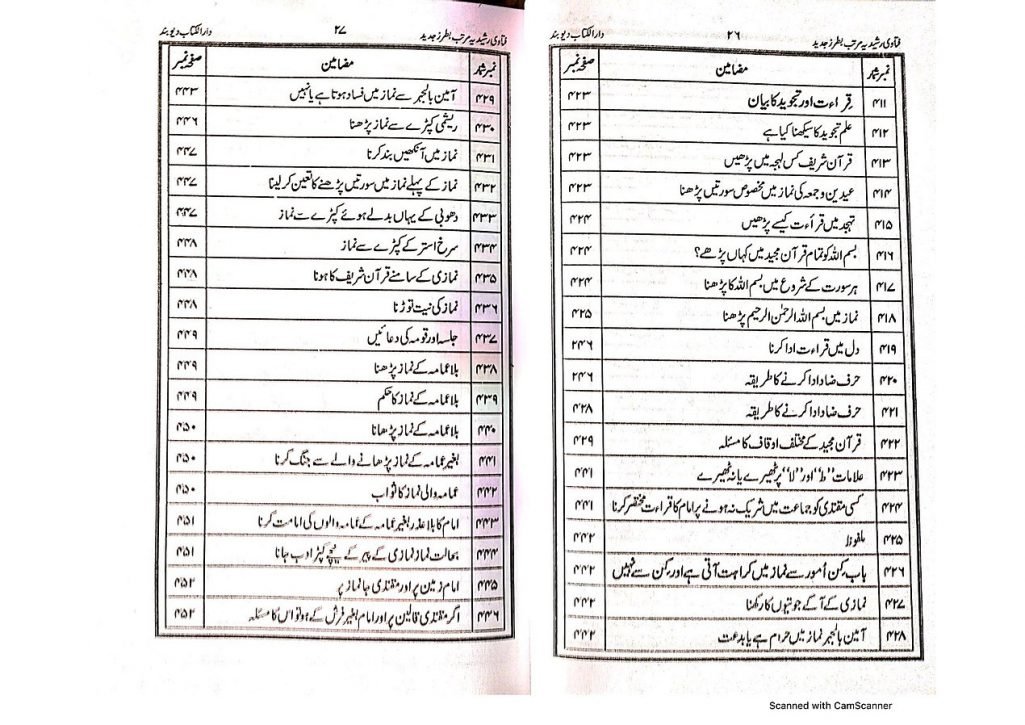 فتاویٰ رشیدیہ مرتب بطرز جدید ۲۶ دارالکتاب دیوبند
نمبر شمار مضامین صفحہ نمبر
۴۱۱ قراءت اور تجوید کا بیان ۴۲۳
۴۱۲ علم تجوید کا سیکھنا کیا ہے ۴۲۳
۴۱۳ قرآن شریف کس لہجہ میں پڑھیں ۴۲۳
۴۱۴ عیدین و جمعہ کی نماز میں مخصوص سورتیں پڑھنا ۴۲۳
۴۱۵ تہجد میں قرأت کیسے پڑھیں ۴۲۴
۴۱۶ بسم اللہ کو تمام قرآن مجید میں کہاں پڑھے؟ ۴۲۴
۴۱۷ ہر سورت کے شروع میں بسم اللہ کا پڑھنا ۴۲۴
۴۱۸ نماز میں بسم اللہ الرحمٰن الرحیم پڑھنا ۴۲۵
۴۱۹ دل میں قراءت ادا کرنا ۲۴۶
۴۲۰ حرف ضاد ادا کرنے کا طریقہ ۲۴۶
۴۲۱ حرف ضاد ادا کرنے کا طریقہ ۴۲۸
۴۲۲ قرآن مجید کے مختلف اوقاف کا مسئلہ ۴۲۹
۴۲۳ علامات ”ط“ اور ”لا“ پر ٹھیرے یا نہ ٹھیرے ۴۴۱
۴۲۴ کسی مقتدی کو جماعت میں شریک نہ ہونے پر امام کا قراءت مختصر کرنا ۴۴۱
۴۲۵ ملفوظ ۴۴۲
۴۲۶ باب: کن اُمور سے نماز میں کراہت آتی ہے اور کن سے نہیں ۴۴۲
۴۲۷ نمازی کے آگے جوتیوں کا رکھنا ۴۴۲
۴۲۸ آمین بالجہر نماز میں حرام ہے یا بدعت ۴۴۲
فتاویٰ رشیدیہ مرتب بطرز جدید ۲۷ دارالکتاب دیوبند
نمبر شمار مضامین صفحہ نمبر
۴۲۹ آمین بالجہر سے نماز میں فساد ہوتا ہے یا نہیں ۴۴۳
۴۳۰ ریشمی کپڑے سے نماز پڑھنا ۴۴۶
۴۳۱ نماز میں آنکھیں بند کرنا ۴۴۷
۴۳۲ نماز کے پہلے نماز میں سورتیں پڑھنے کا تعین کر لینا ۴۴۷
۴۳۳ دھوبی کے یہاں بدلے ہوئے کپڑے سے نماز ۴۴۷
۴۳۴ سرخ استر کے کپڑے سے نماز ۴۴۸
۴۳۵ نمازی کے سامنے قرآن شریف کا ہونا ۴۴۸
۴۳۶ نماز کی نیت توڑنا ۴۴۸
۴۳۷ جلسہ اور قومہ کی دعائیں ۴۴۹
۴۳۸ بلا عمامہ کے نماز پڑھنا ۴۴۹
۴۳۹ بلا عمامہ کے نماز کا حکم ۴۴۹
۴۴۰ بلا عمامہ کے نماز پڑھانا ۴۵۰
۴۴۱ بغیر عمامہ کے نماز پڑھانے والے سے جنگ کرنا ۴۵۰
۴۴۲ عمامہ والی نماز کا ثواب ۴۵۰
۴۴۳ امام کا بلا عذر بغیر عمامہ کے عمامہ والوں کی امامت کرنا ۴۵۱
۴۴۴ بحالت نماز نمازی کے پیر کے نیچے کپڑا دب جانا ۴۵۱
۴۴۵ امام زمین پر اور مقتدی جا نماز پر ۴۵۲
۴۴۶ اگر مقتدی قالین پر اور امام بغیر فرش کے ہو تو اس کا مسئلہ ۴۵۲
Scanned with CamScanner